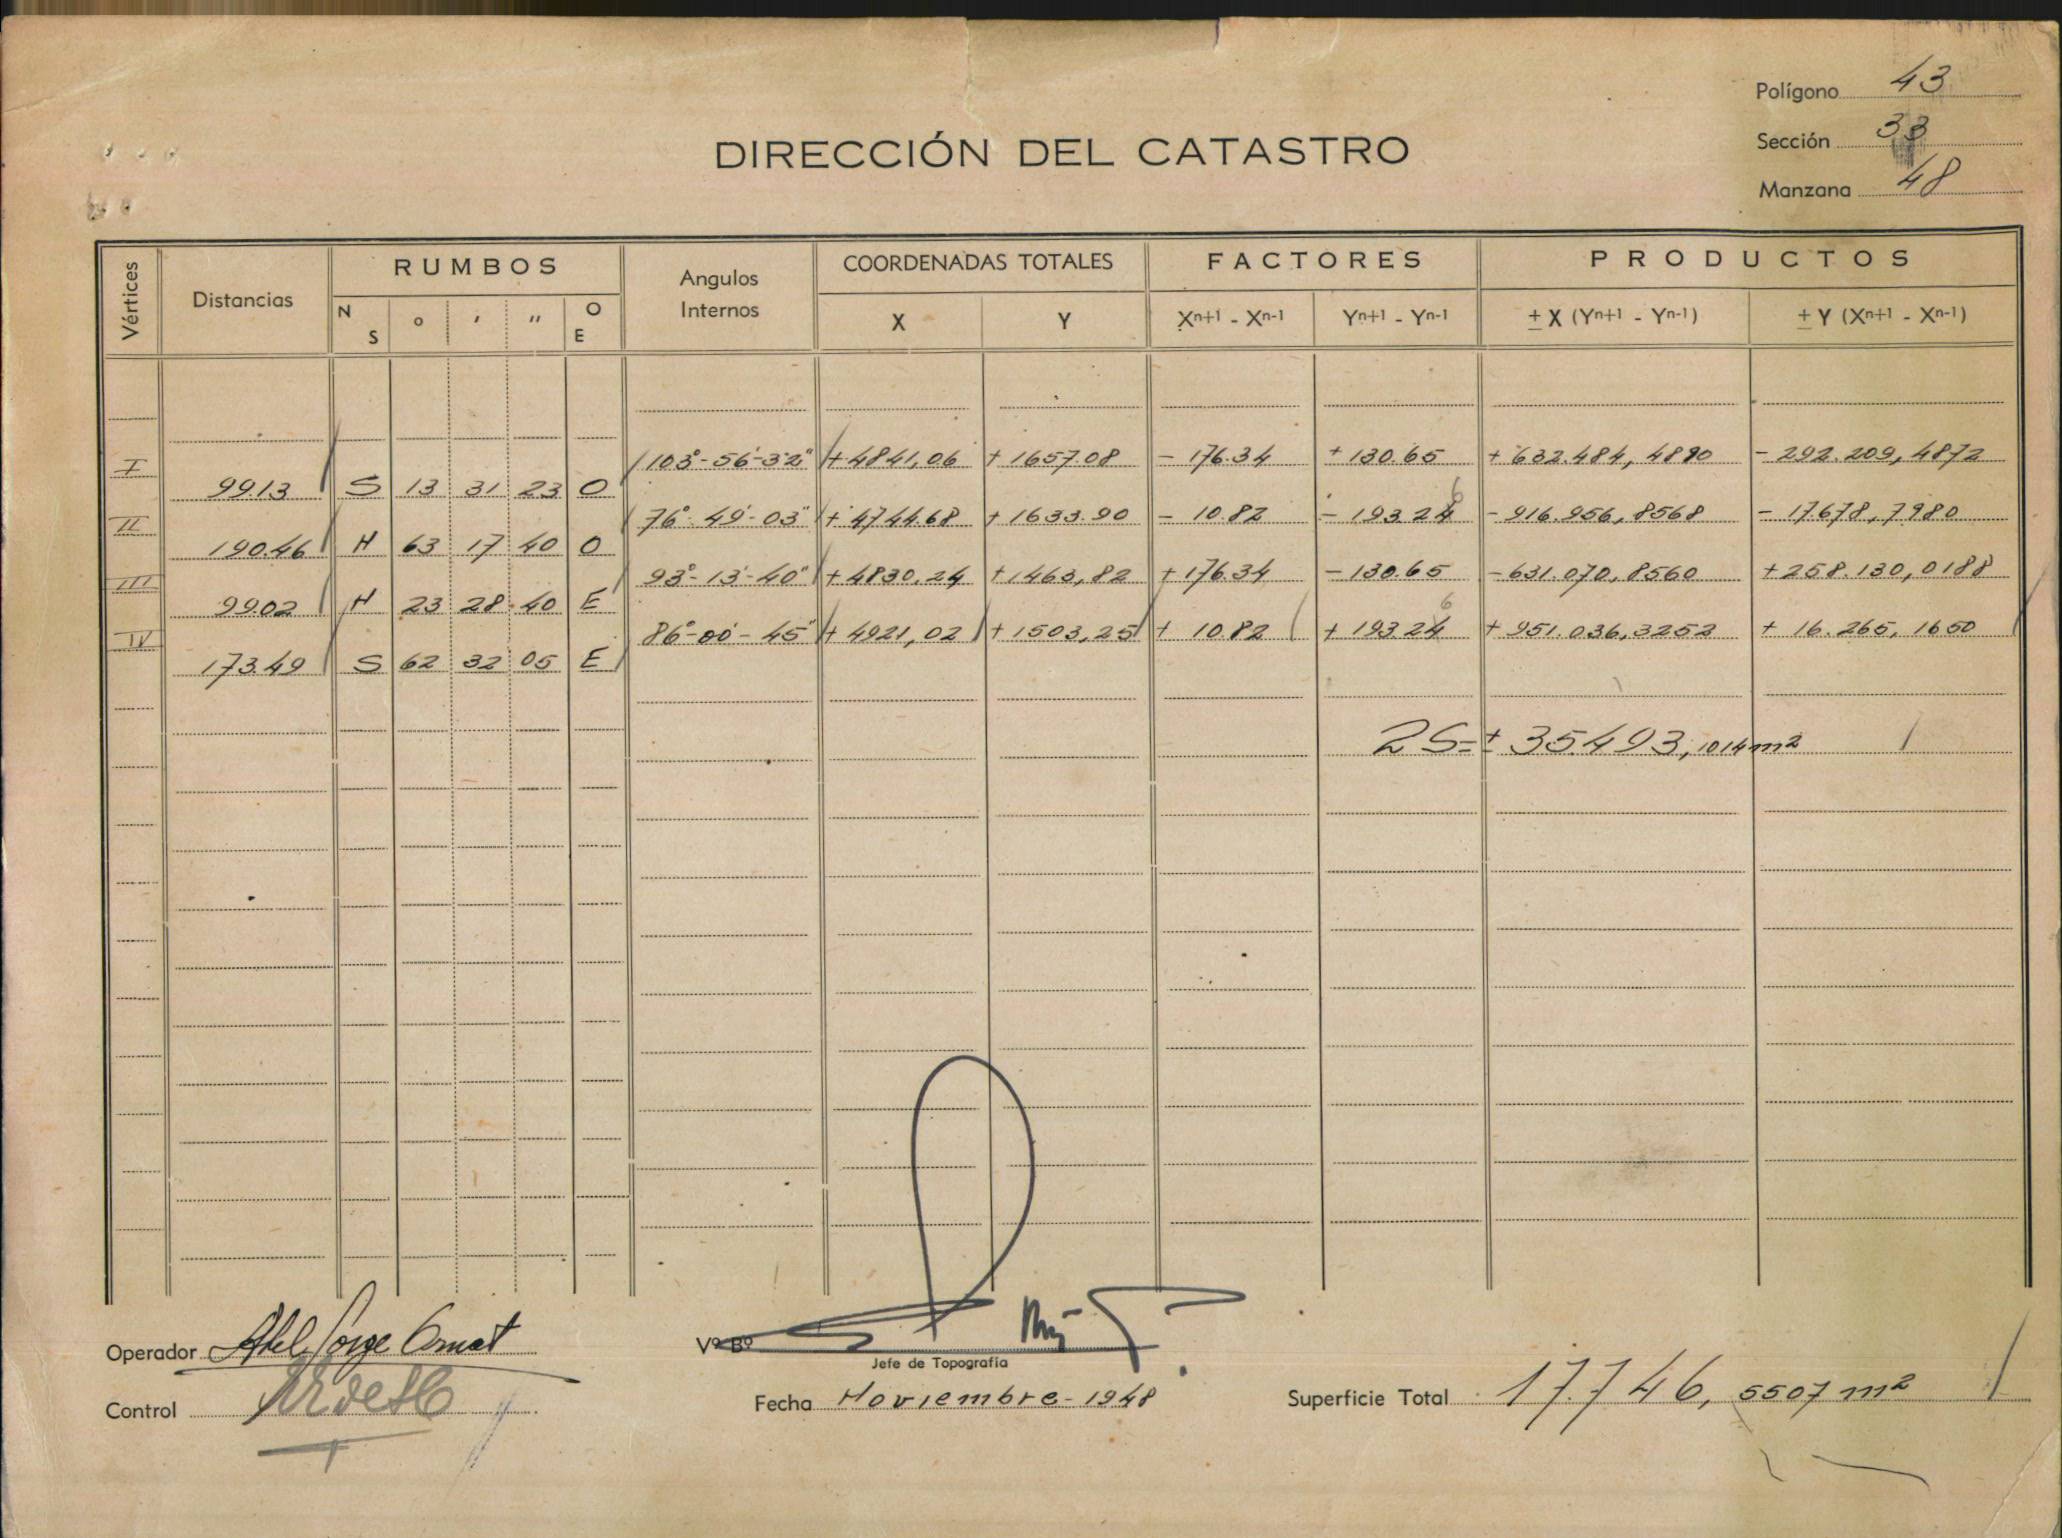 Polígono 43
DIRECCIÓN DEL CATASTRO
Sección 33
Manzana 48
Vértices
Distancias
RUMBOS
N S
o
'
"
O E
Angulos Internos
COORDENADAS TOTALES
X
Y
FACTORES
Xn+1 - Xn-1
Yn+1 - Yn-1
PRODUCTOS
± X (Yn+1 - Yn-1)
± Y (Xn+1 - Xn-1)
I 103°-56'-32" + 4841,06 + 1657.08 - 176.34 + 130.65 + 632.484,4890 - 292.209,4872
99.13 S 13 31 23 O
II 76°-49'-03" + 4744.68 + 1633.90 - 10.82 - 193.24 6 - 916.956,8568 - 17.678,7980
190.46 N 63 17 40 O
III 93°-13'-40" + 4830.24 + 1463,82 + 176.34 - 130.65 - 631.070,8560 + 258.130,0188
99.02 N 23 28 40 E
IV 86°-00'-45" + 4921,02 + 1503,25 + 10.82 + 193.24 6 + 951.036,3252 + 16.265,1650
173.49 S 62 32 05 E
2S=± 35.493,1014 m2
Operador Abel Jorge
Vº Bº
Jefe de Topografía
Control
Fecha Noviembre - 1948
Superficie Total 17.746,5507 m2